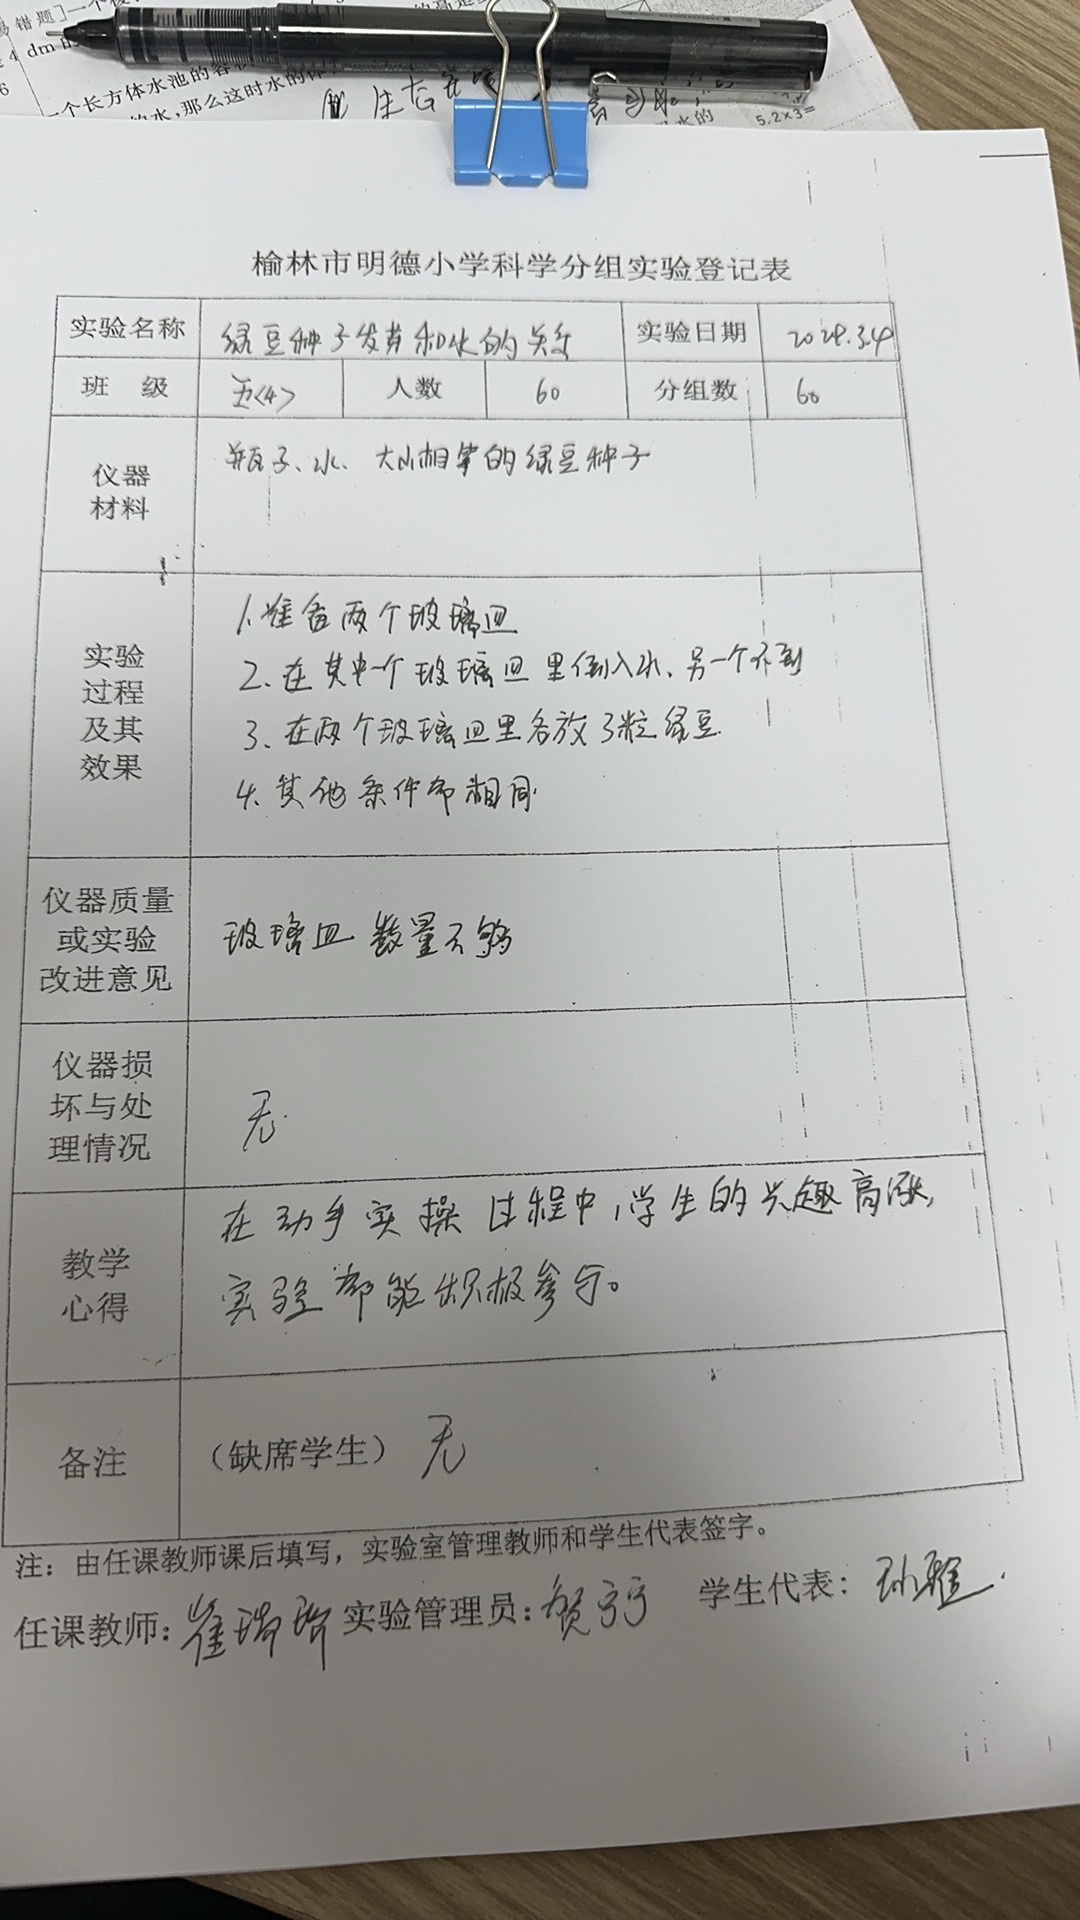 错题]一个长
4 dm的
6
一个长方体水池的容积
的水,那么这时水的体
水的
5.2×3=
榆林市明德小学科学分组实验登记表
实验名称 绿豆种子发芽和水的关系 实验日期 2024.3.4
班 级 五<4> 人数 60 分组数 60
仪器
材料
瓶子、水、大小相等的绿豆种子
实验
过程
及其
效果
1.准备两个玻璃皿
2、在其中一个玻璃皿里倒入水、另一个不到
3、在两个玻璃皿里各放3粒绿豆.
4、其他条件都相同.
仪器质量
或实验
改进意见
玻璃皿数量不够
仪器损
坏与处
理情况
无.
教学
心得
在动手实操过程中,学生的兴趣高涨,
实验都能积极参与。
备注 (缺席学生) 无
注:由任课教师课后填写,实验室管理教师和学生代表签字。
任课教师: 崔 实验管理员: 贺 学生代表: 孙